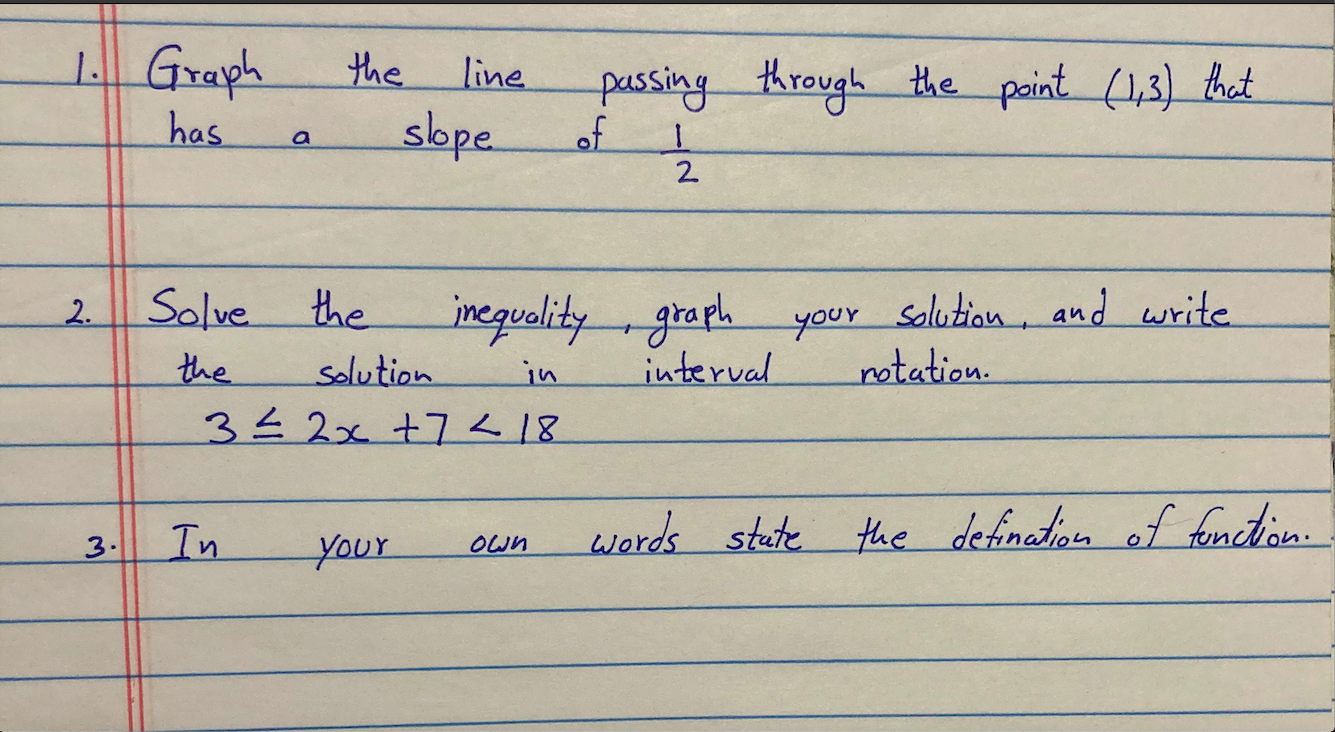 1. Graph the line passing through the point (1,3) that
has a slope of 1/2
2. Solve the inequality, graph your solution, and write
the solution in interval notation.
3 ≤ 2x +7 < 18
3. In your own words state the defination of function.